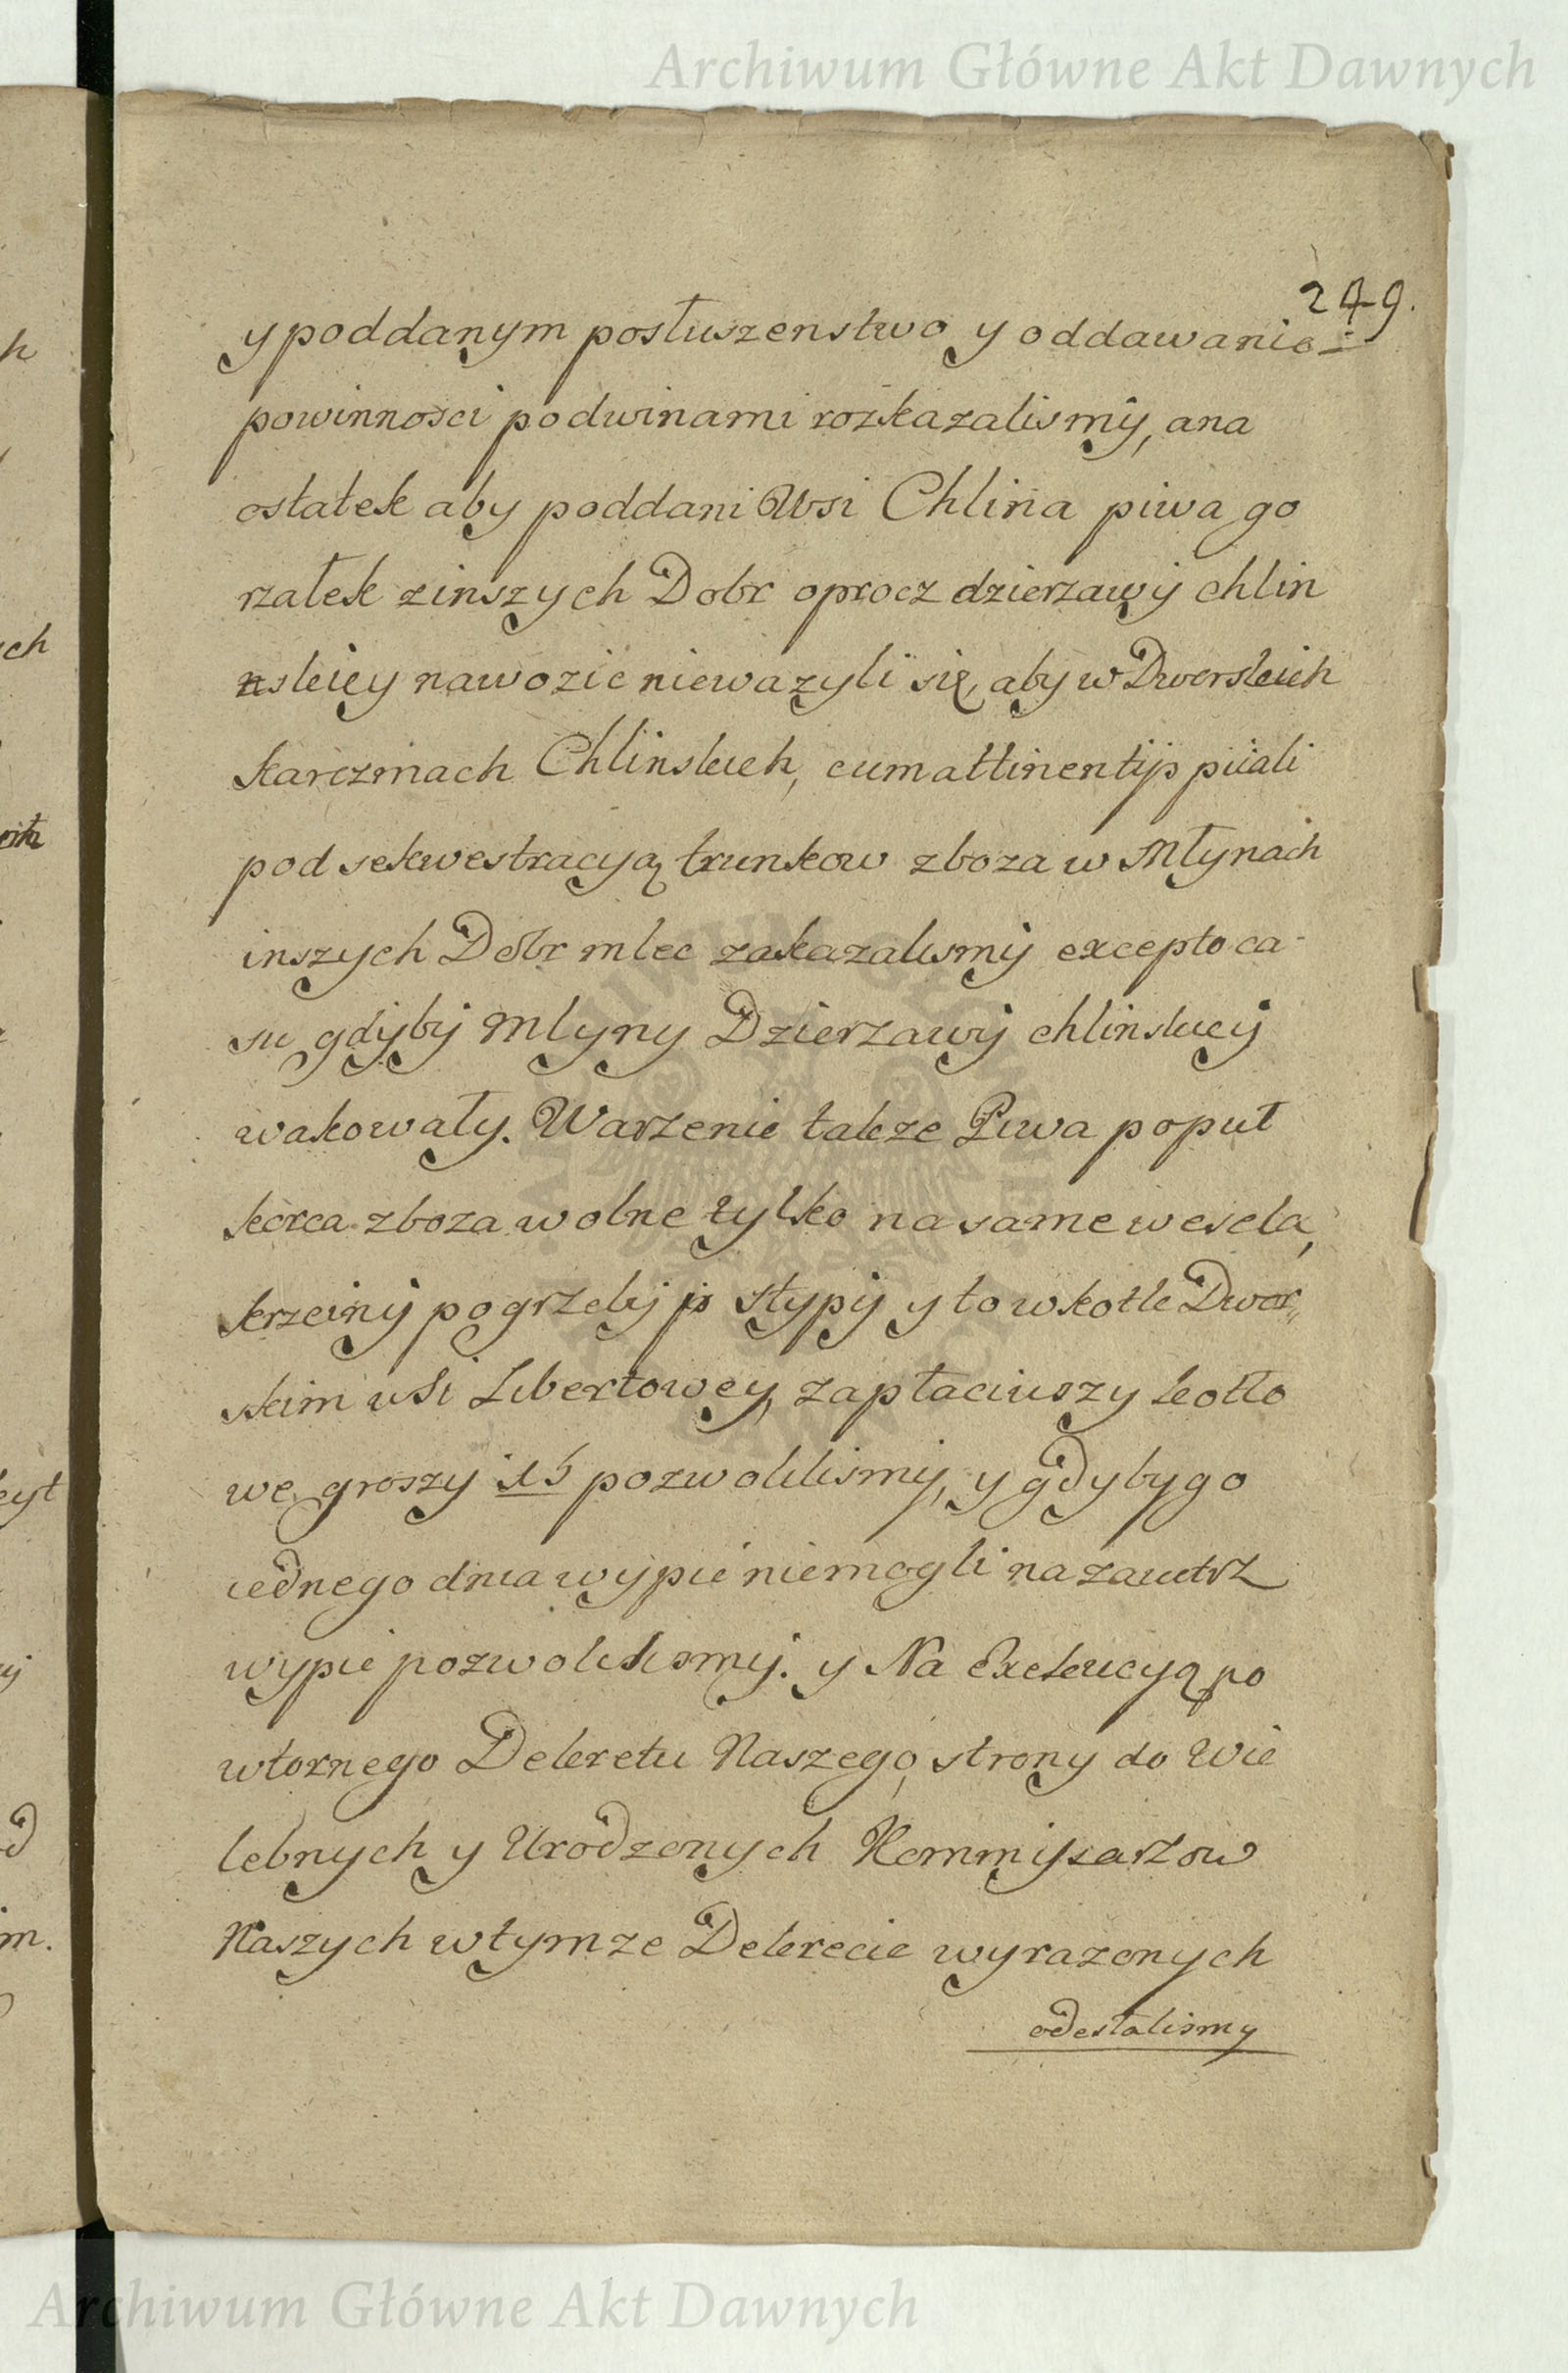 Archiwum Główne Akt Dawnych
249.
y poddanym posłuszenstwo y oddawanie
powinnosci podwinami rozkazalismy, ana
ostatek aby poddani Wsi Chlina piwa go
rzałek zinszych Dobr oprocz dzierzawy chlin
skiey nawozic niewazyli się, aby w Dworskich
karczmach Chlinskich, cum attinentijs piiali
pod sekwestracyą trunkow zboza w Młynach
inszych Dobr mlec zakazalismy excepto ca-
su gdyby Mlyny Dzierzawy chlinskiey
wakowały. Warzenie takze Piwa popuł
korca zboza wolne tylko na same wesela,
krzciny pogrzeby stypy y to wkotle Dwor„
skim wsi Libertowey, zapłaciwszy kotło
we groszy 15 pozwolilismy, y gdyby go
iednego dnia wypic niemogli na zawtrz
wypic pozwolilismy. y Na Exekucyą po
wtornego Dekretu Naszego, strony do Wie
lebnych y Urodzonych Kommissarzow
Naszych wtymze Dekrecie wyrazonych
odesłalismy
Archiwum Główne Akt Dawnych